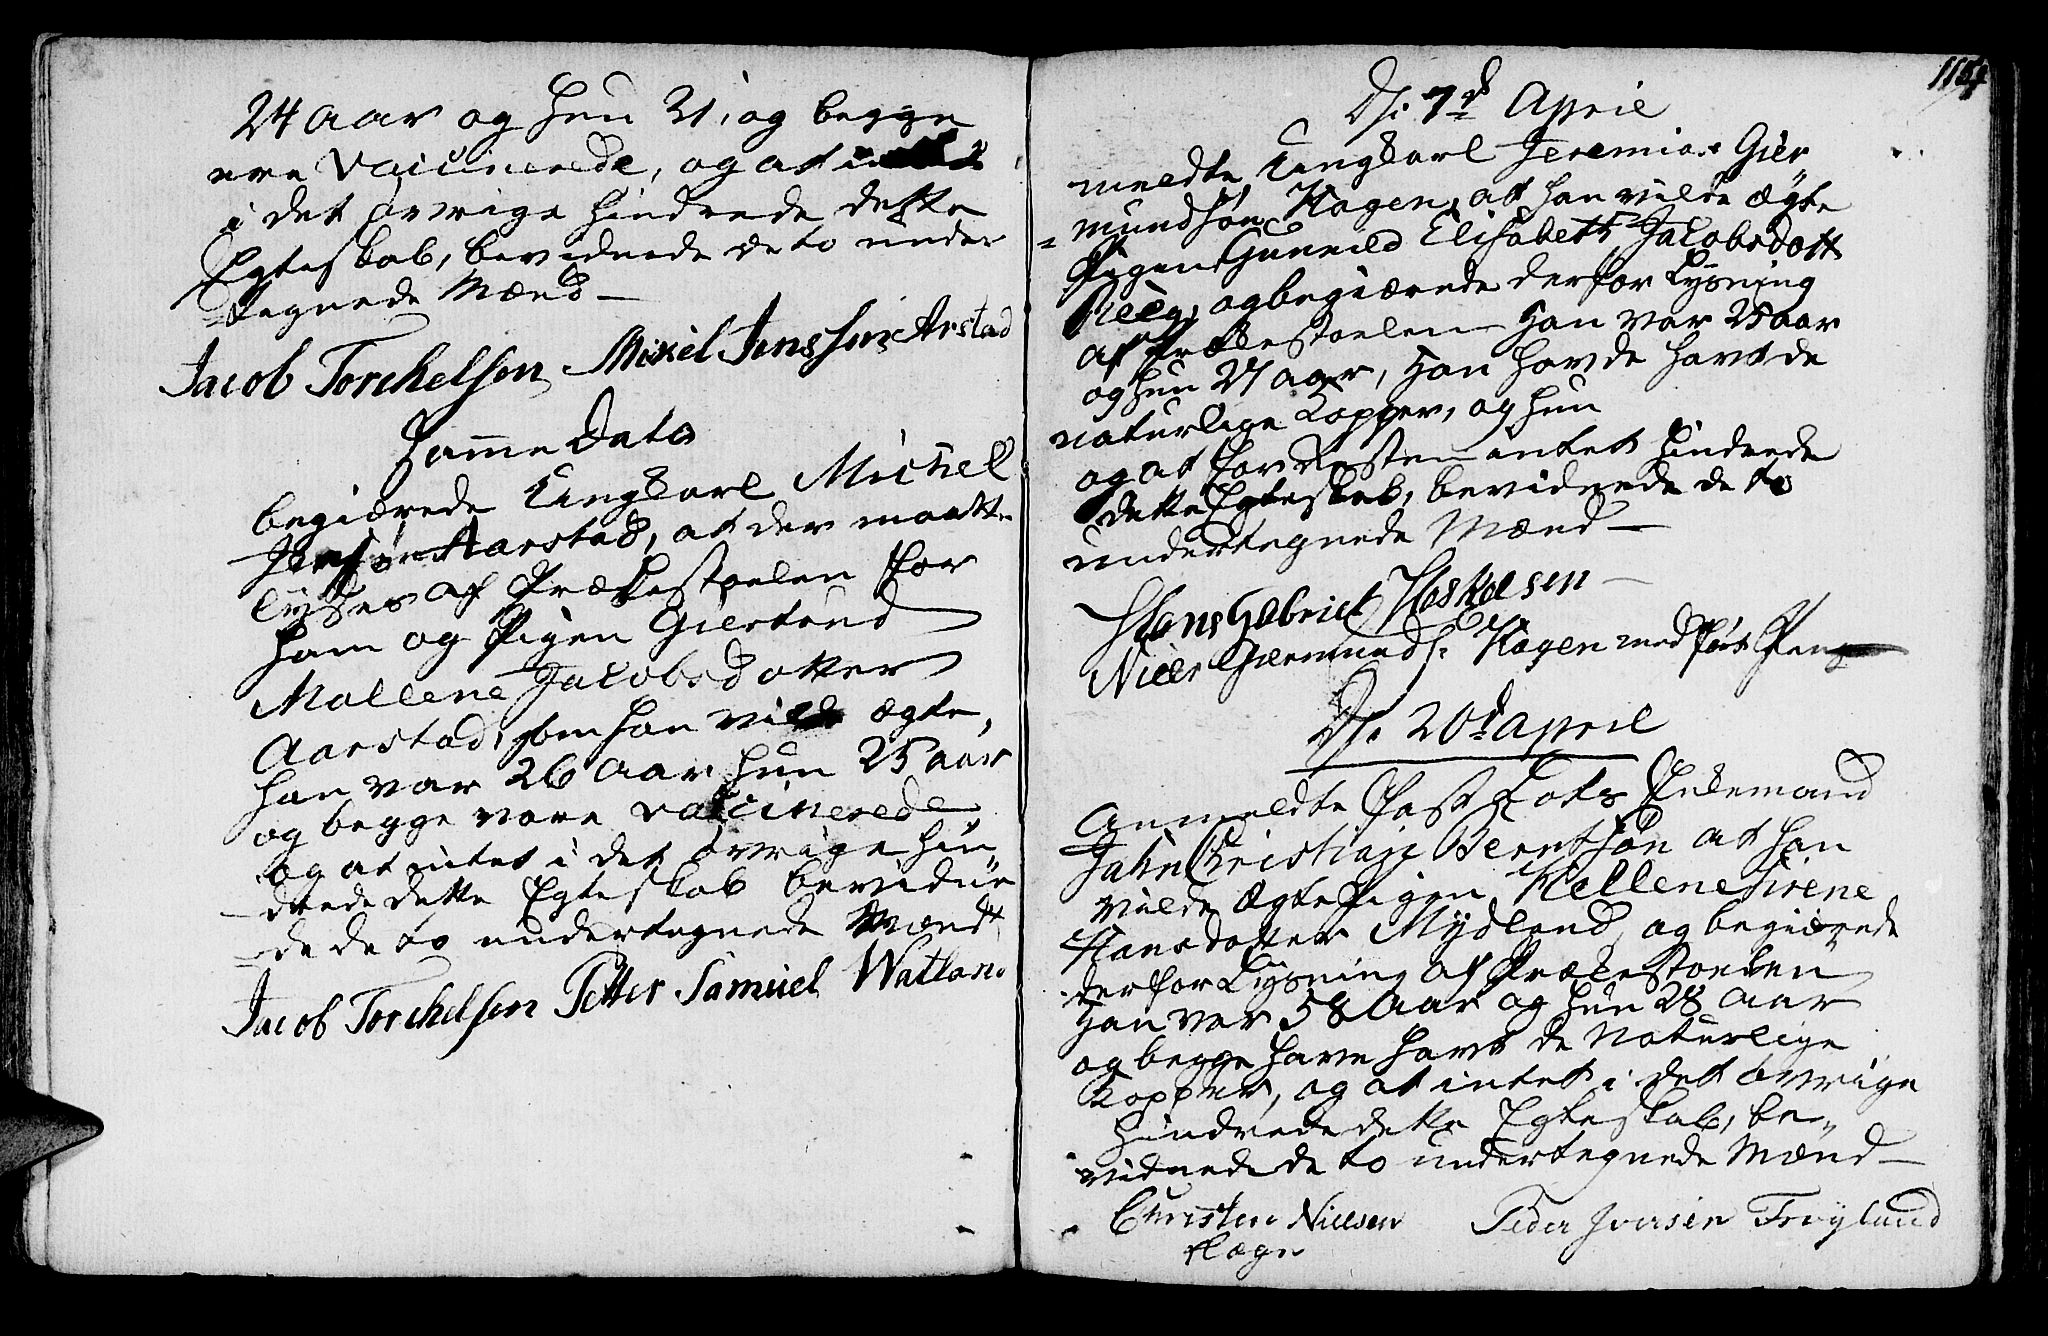 24 Aar og hun 21, og begge
ere Vaccinerede, og at intet
i det øvrige hindrede dette
Egteskab, bevidnede de to under
tegnede Mænd —
Jacob Torchelsen Mikel Jensen Arstad
Samme Dato
begiærede Ungkarl Michel
Jensøn Aarstad, at der maatte
lyses af Prækestoelen for
ham og Pigen Giertrud
Mallene Jacobsdotter
Aarstad, som han vilde ægte,
han var 26 Aar hun 25 aar
og begge vare vaccinerede
og at intet i det øvrige hin„
drede dette Egteskab bevidne
de de to undertegnede Mænd
Jacob Torchelsen Petter Samuel Watland
D. 7d April
meldte Ungkarl Jeremias Gier„
mundsøn Hagen, at han vilde ægte
Pigen Gunnild Elisabeth Jacobsdott
og begiærede derfor Lysning
af Prækestoelen Han var 25 aar
og hun 27 aar, Han havde havt de
naturlige Kopper, og hun
og at for Resten intet hindrede
dette Egteskab, bevidnede de to
undertegnede Mænd —
Hans Gabriel Heskelsen
Niels Giermunds. Hagen med ført Pen
D. 20d April
Anmeldte Enkemand
Jahn Christian Berntsøn at han
vilde Ægte Pigen Hellene Sirene
Hansdotter Mydland, og begiærede
derfor Lysning af Prækestoelen
Han var 58 Aar og hun 28 Aar
og begge have havt de Naturlige
Kopper, og at intet i det øvrige
hindrede dette Egteskab, be„
vidnede de to undertegnede Mænd —
Christen Nielsen Peder Iversen Frøylund
Hægn